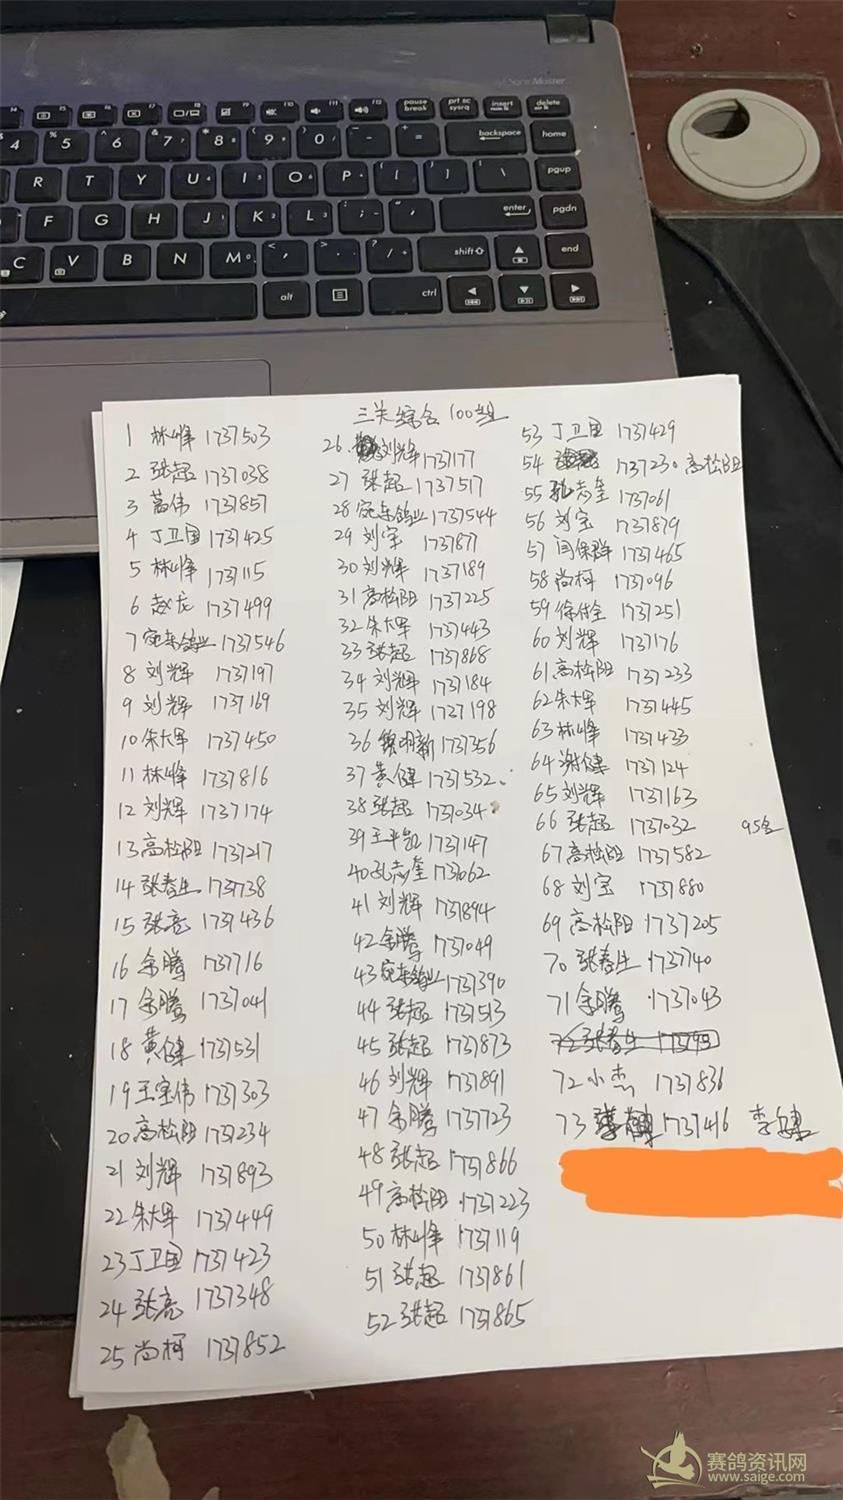 三关综合100组
1 林峰 1737503
2 张超 1737038
3 葛伟 1737857
4 丁卫国 1737425
5 林峰 1737115
6 赵龙 1737499
7 宛东鸽业 1737546
8 刘辉 1737197
9 刘辉 1737169
10 朱大军 1737450
11 林峰 1737816
12 刘辉 1737174
13 高松阳 1737217
14 张春生 1737738
15 张亮 1737436
16 余腾 1737716
17 余腾 1737041
18 黄健 1737531
19 王宝伟 1737303
20 高松阳 1737234
21 刘辉 1737893
22 朱大军 1737449
23 丁卫国 1737423
24 张亮 1737348
25 尚柯 1737852
26 刘辉 1737177
27 张超 1737517
28 宛东鸽业 1737544
29 刘宝 1737877
30 刘辉 1737189
31 高松阳 1737225
32 朱大军 1737443
33 张超 1737868
34 刘辉 1737184
35 刘辉 1737198
36 1737356
37 黄健 1737532
38 张超 1737034
39 王平 1737147
40 孔志奎 1737062
41 刘辉 1737894
42 余腾 1737049
43 宛东鸽业 1737390
44 张超 1737513
45 张超 1737873
46 刘辉 1737891
47 余腾 1737723
48 张超 1737866
49 高松阳 1737223
50 林峰 1737119
51 张超 1737861
52 张超 1737865
53 丁卫国 1737429
54 1737230 高松阳
55 孔志奎 1737061
56 刘宝 1737879
57 闫保群 1737465
58 尚柯 1737096
59 徐付全 1737251
60 刘辉 1737176
61 高松阳 1737233
62 朱大军 1737445
63 林峰 1737433
64 谢健 1737124
65 刘辉 1737163
66 张超 1737032 95名
67 高松阳 1737582
68 刘宝 1737880
69 高松阳 1737205
70 张春生 1737740
71 余腾 1737043
72 张春生
72 小杰 1737836
73 1737416 李健
赛鸽资讯网
www.saige.com
backspace
home
pgup
enter
pgdn
shift
end
alt
ctrl
pause break
prt sc sysrq
insert
delete